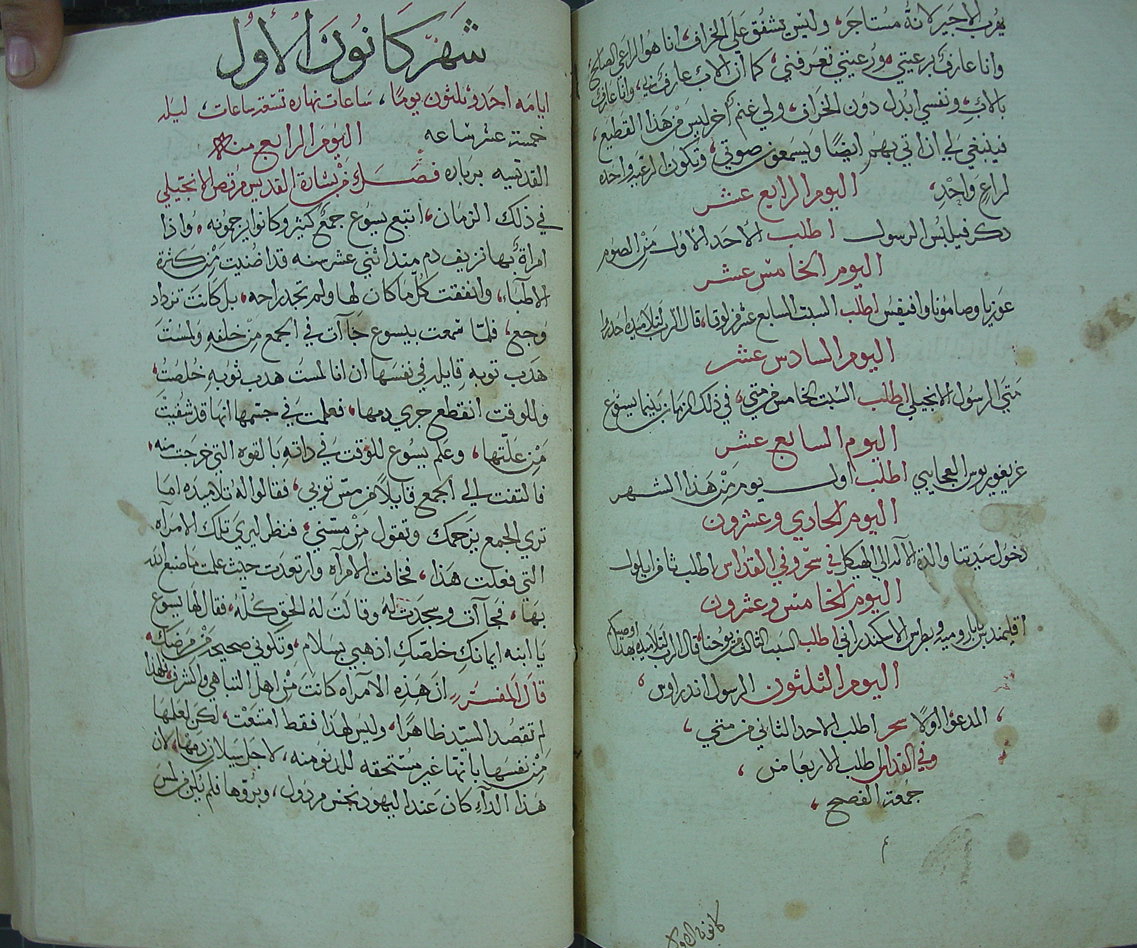 يهرب الاجير لانهُ مستاجر، وليس يشفق على الخراف، انا هو الراعي الصالح
وانا عارف برعيتي ورعيتي تعرفني، كما ان الاب عارف بي، وانا عارف
بالاب، ونفسي ابدل دون الخراف، ولي غنم اخر ليس من هذا القطيع،
فينبغي لي ان اتي بهم ايضًا ويسمعون صوتي، وتكون الرعيه واحده
لراعٍ واحدٍ،
اليوم الرابع عشر
دكر فيلبس الرسول اطلب الاحد الاول من الصوم
اليوم الخامس عشر
غوريا وصامونا وافيفس اطلب السبت السابع عشر من لوقا، قال الرب لتلاميذه احدروا
اليوم السادس عشر
متي الرسول الانجيلي اطلب السبت الخامس من متي، في ذلك الزمان بينما يسوع
اليوم السابع عشر
غريغوريوس العجايبي اطلب اول يوم من هذا الشهر
اليوم الحادي وعشرون
دخول سيدتنا والدة الاله الى الهيكل في سحر وفي القداس اطلب ثامن ايلول
اليوم الخامس وعشرون
اقليمندس بابا روميه وبطرس الاسكندراني اطلب السبت الثالث من يوحنا، قال الرب لتلاميذه بهذا اوصيكم
اليوم الثلثون الرسول اندراوس،
المدعو اولًا سحر اطلب الاحد الثاني من متي،
وفي القداس اطلب الاربعا من
جمعة الفصح،
كانون الاول
شهر كانون الأول
ايامه احد وثلثون يومًا، ساعات نهاره تسعة ساعات، ليله
خمسة عشر ساعه اليوم الرابع منه
القديسه برباره فصل من بشارة القديس مرقص الانجيلي
في ذلك الزمان، اتبع يسوع جمعٌ كثير وكانوا يزحمونه، واذا
امراةٌ بها نزيف دم منذ اثني عشر سنه قد اضنيت من كثرة
الاطبآء، وانفقت كلّما كان لها ولم تجد راحه، بل كانت تزداد
وجع، فلمّا سمعت بيسوع جاآت في الجمع من خلفهِ ولمست
هدب ثوبه قايلهً في نفسها ان انا لمست هدب ثوبه خلصتُ،
وللوقت انقطع جري دمها، فعلمت في جسمها انها قد شفيت
من علّتها، وعلم يسوع للوقت في ذاتهِ بالقوه التي خرجت منه،
فالتفت الى الجمع قايلًا من مسّ ثوبي، فقالوا له تلاميذه اما
ترى الجمع يزحمك وتقول من مسّني، فنظر ليري تلك الامراه
التي فعلت هذا، فخافت الامراه وارتعدت حيث علمت ما صنع لله
بها، فجاآت وسجدت له وقالت له الحق كلّه، فقال لها يسوع
يا ابنه ايمانك خلصّك اذهبي بسلام، وتكوني صحيحة من مرضك،
قال المفسّر، ان هذه الامراه كانت من اهل التناهي والشرف، ولهذا
لم تقصد السيّد ظاهرًا، وليس لهذا فقط امتنعت، لكن لعلمها
من نفسها بانها غير مستحقه للدنو منه، لاجل سيلان دمها، لان
هذا الدآء كان عند اليهود نجس مردول، وبروها فلم يكن من لمس